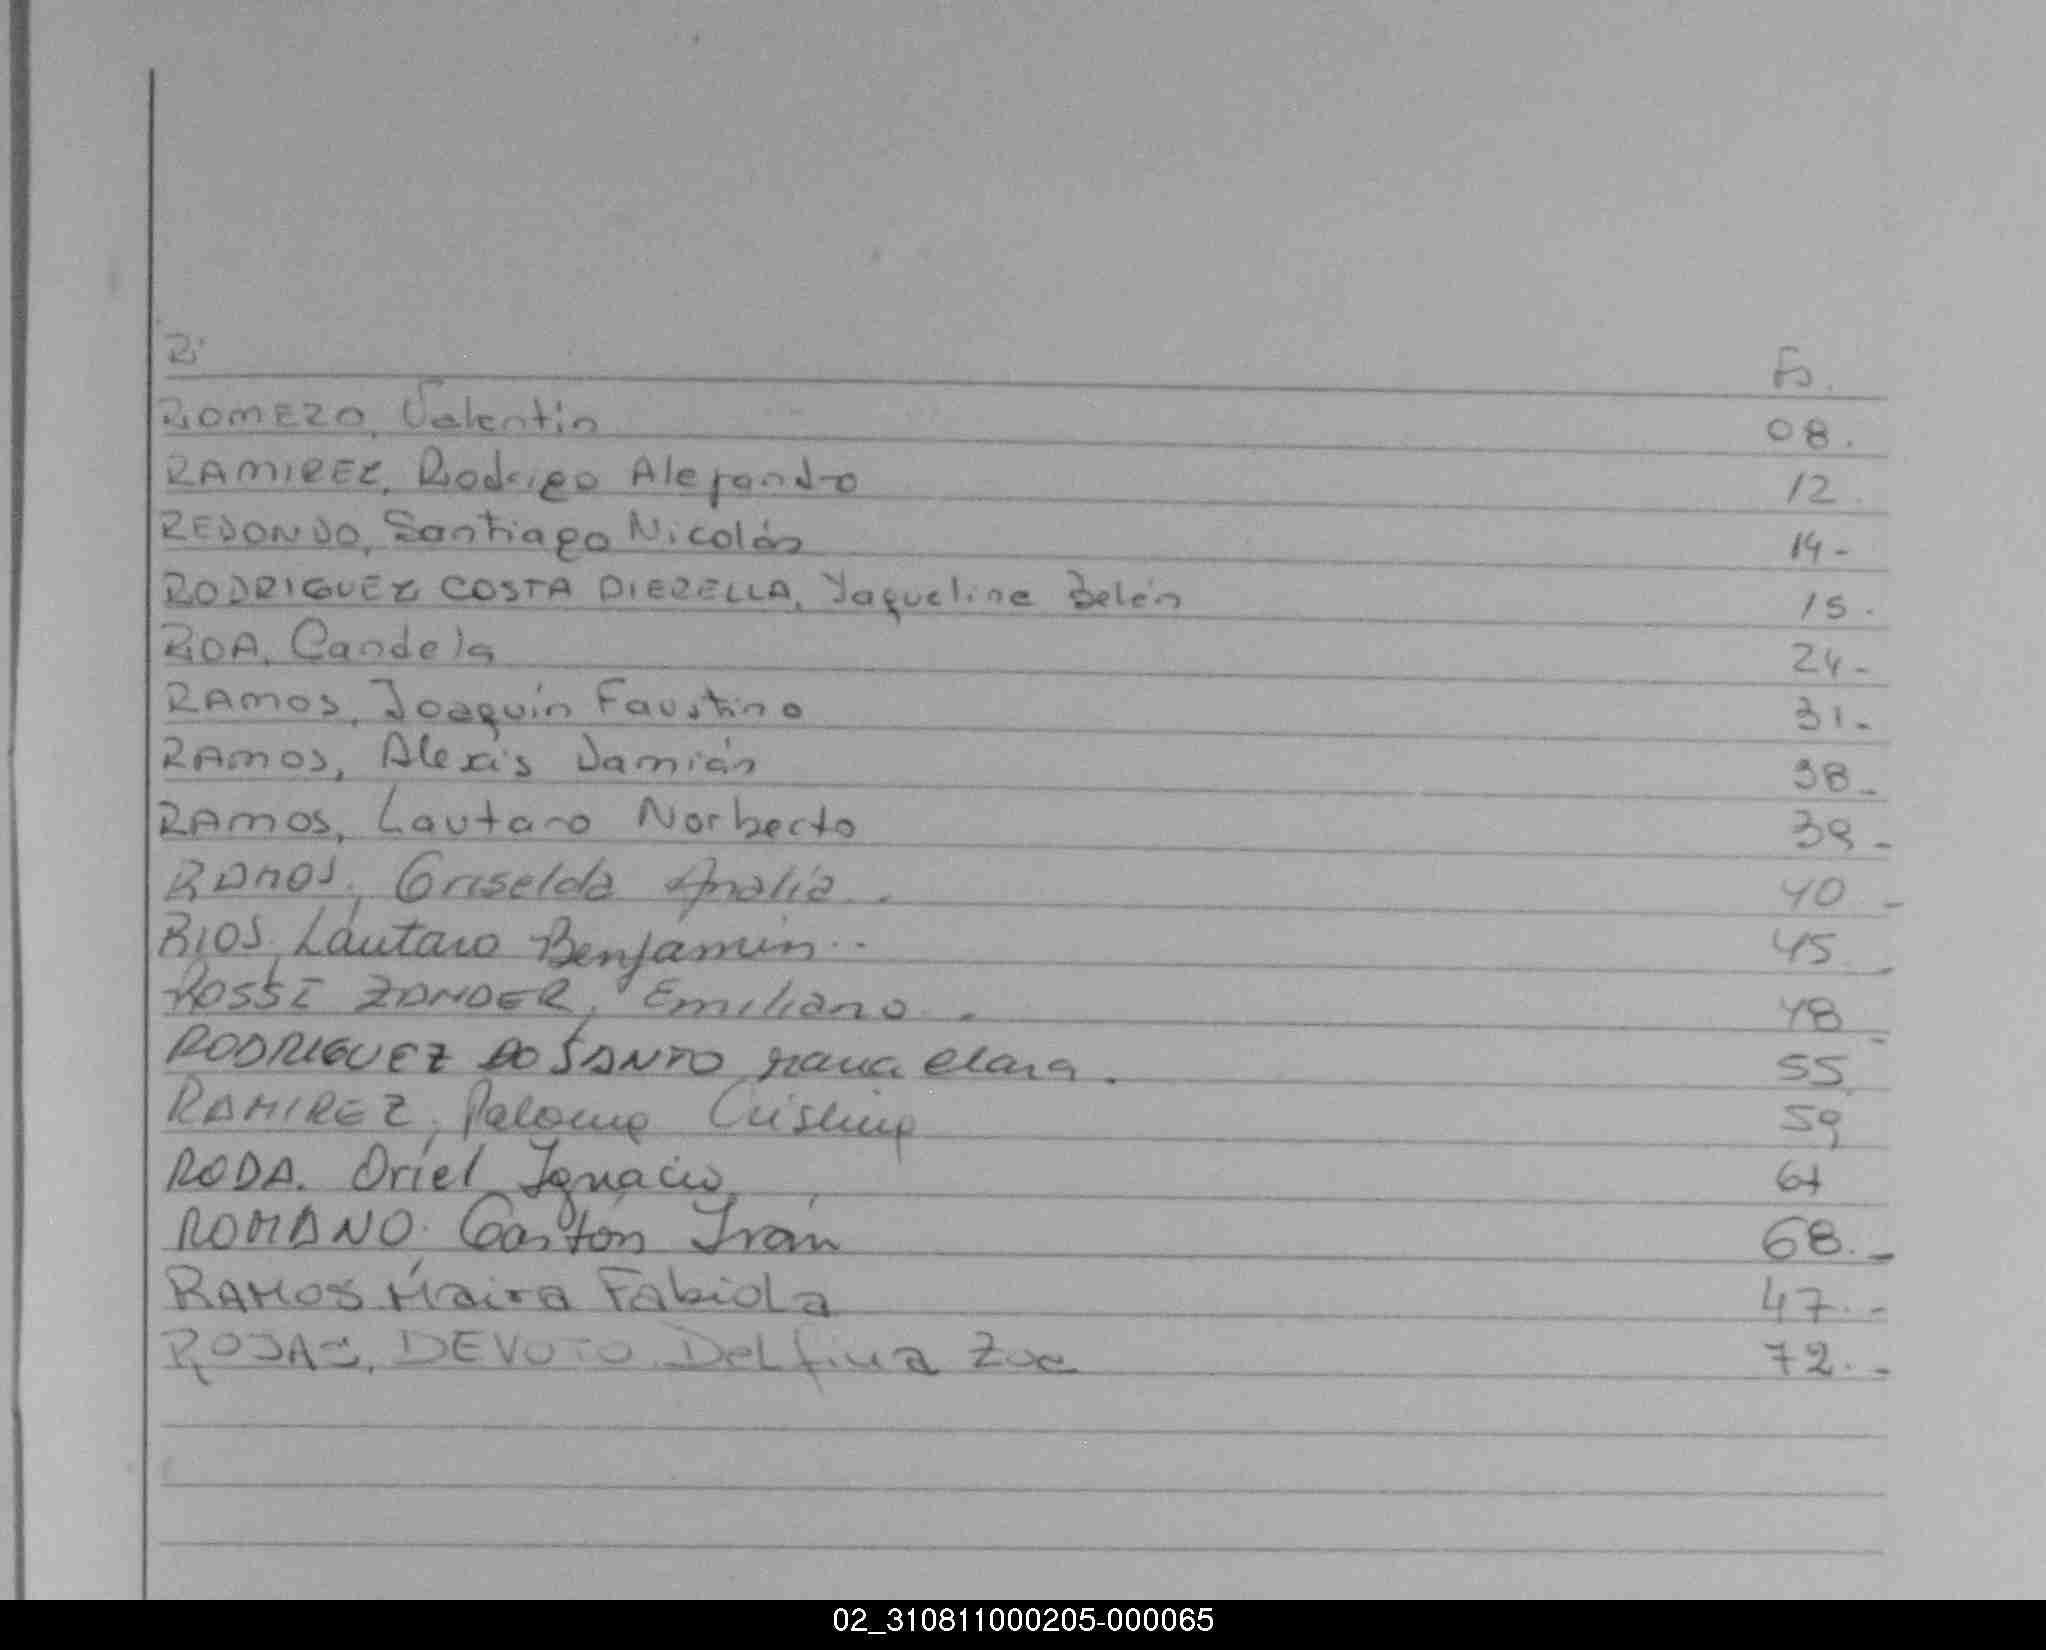 R. Fs.
ROMERO, Valentín 08.
RAMIREZ, Rodrigo Alejandro 12.
REDONDO, Santiago Nicolás 14-
RODRIGUEZ COSTA DIERELLA, Yaqueline Belén 15.
ROA, Candela 24-
RAMOS, Joaquín Faustino 31-
RAMOS, Alexis Damián 38-
RAMOS, Lautaro Norberto 39-
RAMOS, Griselda Analía. 40-
RIOS, Lautaro Benjamín.. 45-
ROSSI ZANDER, Emiliano. 48-
RODRIGUEZ DO SANTO Maria Clara. 55
RAMIREZ, Paloma Cristina 59
RODA. Oriel Ignacio
ROMANO. Gastón Iván 68.-
RAMOS Maira Fabiola 47.-
ROJAS, DEVOTO Delfina Zoe 72.-
02_310811000205-000065